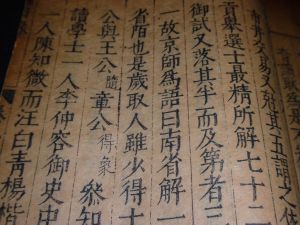 其五謂之
貢舉選士最精所解七十二
御試又落其半而及第者三
一故京師為語曰南省解一
省陌也是歲取人雖少得十
公與王公隨章公得象叅知
讀學士一人李仲容御史中
人陳知微而汪白青楊楷